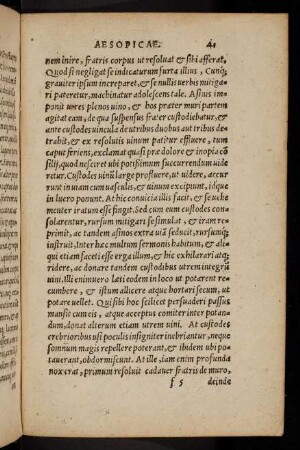 AESOPICAE. 41
nem inire, fratris corpus ut resoluat & sibi afferat.
Quod si negligat se indicaturum furta illius, Cunq;
grauiter ipsum increparet, & se nullis uerbis mitigari
pateretur, machinatur adolescens tale. Asinis imponit
utres plenos uino, & hos præter muri partem
agitat eam, de qua suspensus frater custodiebatur, &
ante custodes uincula de utribus duobus aut tribus detrahit,
& ex resolutis uinum patitur effluere, tum
caput feriens, exclamat quasi præ dolore & inopia consilij,
quod nesciret ubi potissimum succurrendum uideretur.
Custodes uinū large profluere, ut uidere, accurrunt
in uiam cum uasculis, et uinum excipiunt, idque
in lucro ponunt. At hic conuicia illis facit, & se uehementer
iratum esse fingit. Sed cum eum custodes consolarentur,
rursum mitigari se simulat, & iram reprimit,
ac tandem asinos extra uiā seducit, rursumq;
instruit. Inter hæc multum sermonis habitum, et aliqui
etiam faceti esse erga illum, & hic exhilarari atq;
ridere, ac donare tandem custodibus utrem integrū
uini. Illi enimuero lati eodem in loco ut potarent recumbere,
& istum allicere atque hortari secum, ut
potare uellet. Qui sibi hoc scilicet persuaderi passus
mansit cum eis, atque acceptus comiter inter potandum,
donat alterum etiam utrem uini. At custodes
crebrioribus usi poculis insigniter inebriantur, neque
somnum magis repellere poterant, & ibidem ubi potauerant,
obdormiscunt. At ille, iam enim profunda
nox erat, primum resoluit cadauer fratris de muro,
f 5 deinde